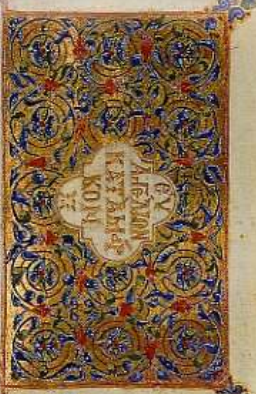 ΕΥ
ΑΓΓΕΛΙΟΝ
ΚΑΤΑ ΜΑΡ
ΚΟΝ